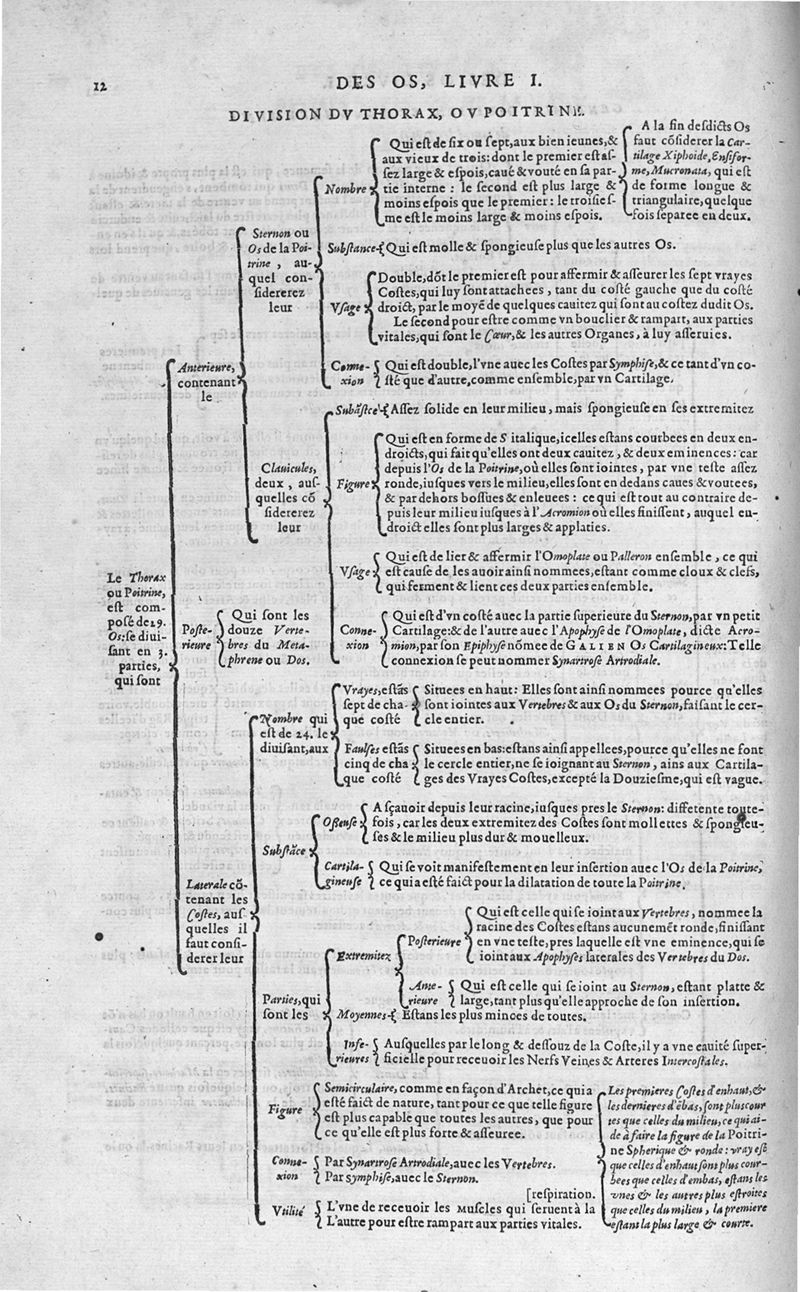 12
DES OS, LIVRE I.
DIVISION DV THORAX, OV POITRINE.
Le Thorax
ou Poitrine,
est com-
posé de 29.
Os: se diui-
sant en 3.
parties,
qui sont
Anterieure,
contenant
le
Sternon ou
Os de la Poi-
trine, au-
quel con-
sidererez
leur
Nombre
Qui est de six ou sept, aux bien ieunes, &
aux vieux de trois: dont le premier est as-
sez large & espois, caué & vouté en sa par-
tie interne : le second est plus large &
moins espois que le premier: le troisies-
me est le moins large & moins espois.
A la fin desdicts Os
faut cõsiderer la Car-
tilage Xiphoide, Ensifor-
me, Mucronata, qui est
de forme longue &
triangulaire, quelque
fois separee en deux.
Substance
Qui est molle & spongieuse plus que les autres Os.
Vsage
Double, dõt le premier est pour affermir & asseurer les sept vrayes
Costes, qui luy sont attachees, tant du costé gauche que du costé
droict, par le moyẽ de quelques cauitez qui sont au costez dudit Os.
Le second pour estre comme vn bouclier & rampart, aux parties
vitales, qui sont le Cœur, & les autres Organes, à luy asseruies.
Conne-
xion
Qui est double, l'vne auec les Costes par Symphise, & ce tant d'vn co-
sté que d'autre, comme ensemble, par vn Cartilage.
Clauicules,
deux, aus-
quelles cõ
sidererez
leur
Substãce
Assez solide en leur milieu, mais spongieuse en ses extremitez
Figure
Qui est en forme de S italique, icelles estans courbees en deux en-
droicts, qui fait qu'elles ont deux cauitez, & deux eminences : car
depuis l'Os de la Poitrine, où elles sont iointes, par vne teste assez
ronde, iusques vers le milieu, elles sont en dedans caues & voutees,
& par dehors bossues & enleuees : ce qui est tout au contraire de-
puis leur milieu iusques à l'Acromion où elles finissent, auquel en-
droict elles sont plus larges & applaties.
Vsage
Qui est de lier & affermir l'Omoplate ou Palleron ensemble, ce qui
est cause de les auoir ainsi nommees, estant comme cloux & clefs,
qui ferment & lient ces deux parties ensemble.
Conne-
xion
Qui est d'vn costé auec la partie superieure du Sternon, par vn petit
Cartilage: & de l'autre auec l'Apophyse de l'Omoplate, dicte Acro-
mion, par son Epiphyse nõmee de GALIEN Os Cartilagineux: Telle
connexion se peut nommer Synartrose Artrodiale.
Poste-
rieure
Qui sont les
douze Verte-
bres du Meta-
phrene ou Dos.
Laterale cõ-
tenant les
Costes, aus-
quelles il
faut consi-
derer leur
Nombre qui
est de 24. le
diuisant, aux
Vrayes, estãs
sept de cha-
que costé
Situees en haut: Elles sont ainsi nommees pource qu'elles
sont iointes aux Vertebres & aux Os du Sternon, faisant le cer-
cle entier.
Faulses estãs
cinq de cha
que costé
Situees en bas: estans ainsi appellees, pource qu'elles ne font
le cercle entier, ne se ioignant au Sternon, ains aux Cartila-
ges des Vrayes Costes, excepté la Douziesme, qui est vague.
Substãce
Osseuse
A sçauoir depuis leur racine, iusques pres le Sternon: differente toute-
fois, car les deux extremitez des Costes sont mollettes & spongieu-
ses & le milieu plus dur & mouelleux.
Cartila-
gineuse
Qui se voit manifestement en leur insertion auec l'Os de la Poitrine,
ce qui a esté faict pour la dilatation de toute la Poitrine.
Parties, qui
sont les
Extremitez
Posterieure
Qui est celle qui se ioint aux Vertebres, nommee la
racine des Costes estans aucunemẽt ronde, finissant
en vne teste, pres laquelle est vne eminence, qui se
ioint aux Apophyses laterales des Vertebres du Dos.
Ante-
rieure
Qui est celle qui se ioint au Sternon, estant platte &
large, tant plus qu'elle approche de son insertion.
Moyennes
Estans les plus minces de toutes.
Infe-
rieures
Ausquelles par le long & dessouz de la Coste, il y a vne cauité super-
ficielle pour receuoir les Nerfs Veines & Arteres Intercostales.
Figure
Semicirculaire, comme en façon d'Archet, ce qui a
esté faict de nature, tant pour ce que telle figure
est plus capable que toutes les autres, que pour
ce qu'elle est plus forte & asseuree.
Les premieres Costes d'enhaut, &
les dernieres d'ẽbas, sont plus cour
tes que celles du milieu, ce qui ai-
de à faire la figure de la Poitri-
ne Spherique & ronde : vray est
que celles d'enhaut sont plus cour-
bees que celles d'embas, estans les
vnes & les autres plus estroites
que celles du milieu, la premiere
estant la plus large & courte.
Conne-
xion
Par Synartrose Artrodiale, auec les Vertebres.
Par symphise, auec le Sternon.
Vtilité
[respiration.
L'vne de receuoir les Muscles qui seruent à la
L'autre pour estre rampart aux parties vitales.